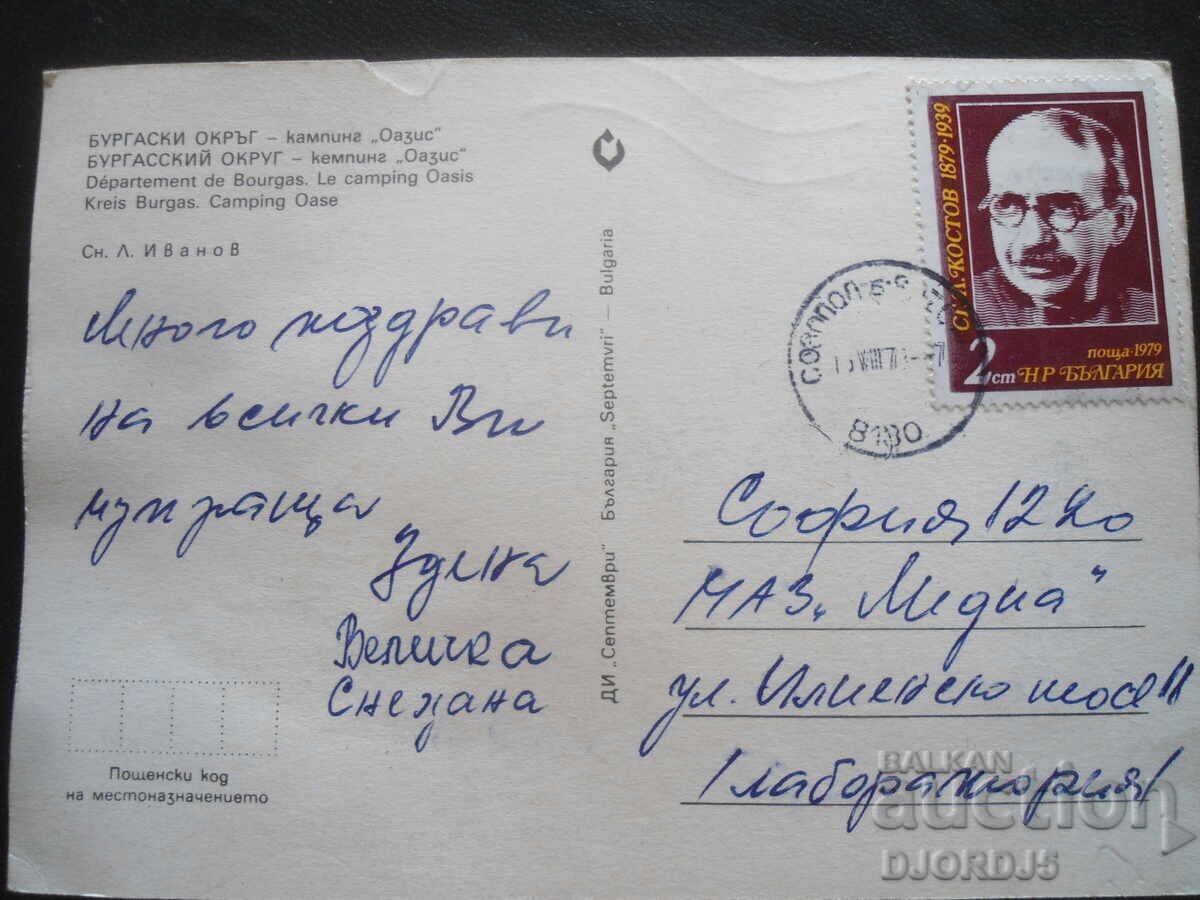 БУРГАСКИ ОКРЪГ – кампинг „Оазис“
БУРГАССКИЙ ОКРУГ – кемпинг „Оазис“
Département de Bourgas. Le camping Oasis
Kreis Burgas. Camping Oase
Сн. Л. Иванов
Много поздрави
на всички Ви
изпраща
Здуна
Величка
Снежана
Пощенски код
на местоназначението
ДИ „Септември“ България „Septemvri“ – Bulgaria
СТ. Л. КОСТОВ 1879·1939
поща·1979
2 ст НР БЪЛГАРИЯ
8130
София 1220
МАЗ „Медиа“
ул. Илиенско шосе 11
/лаборатория/
BALKAN
auction
DJORDJ5